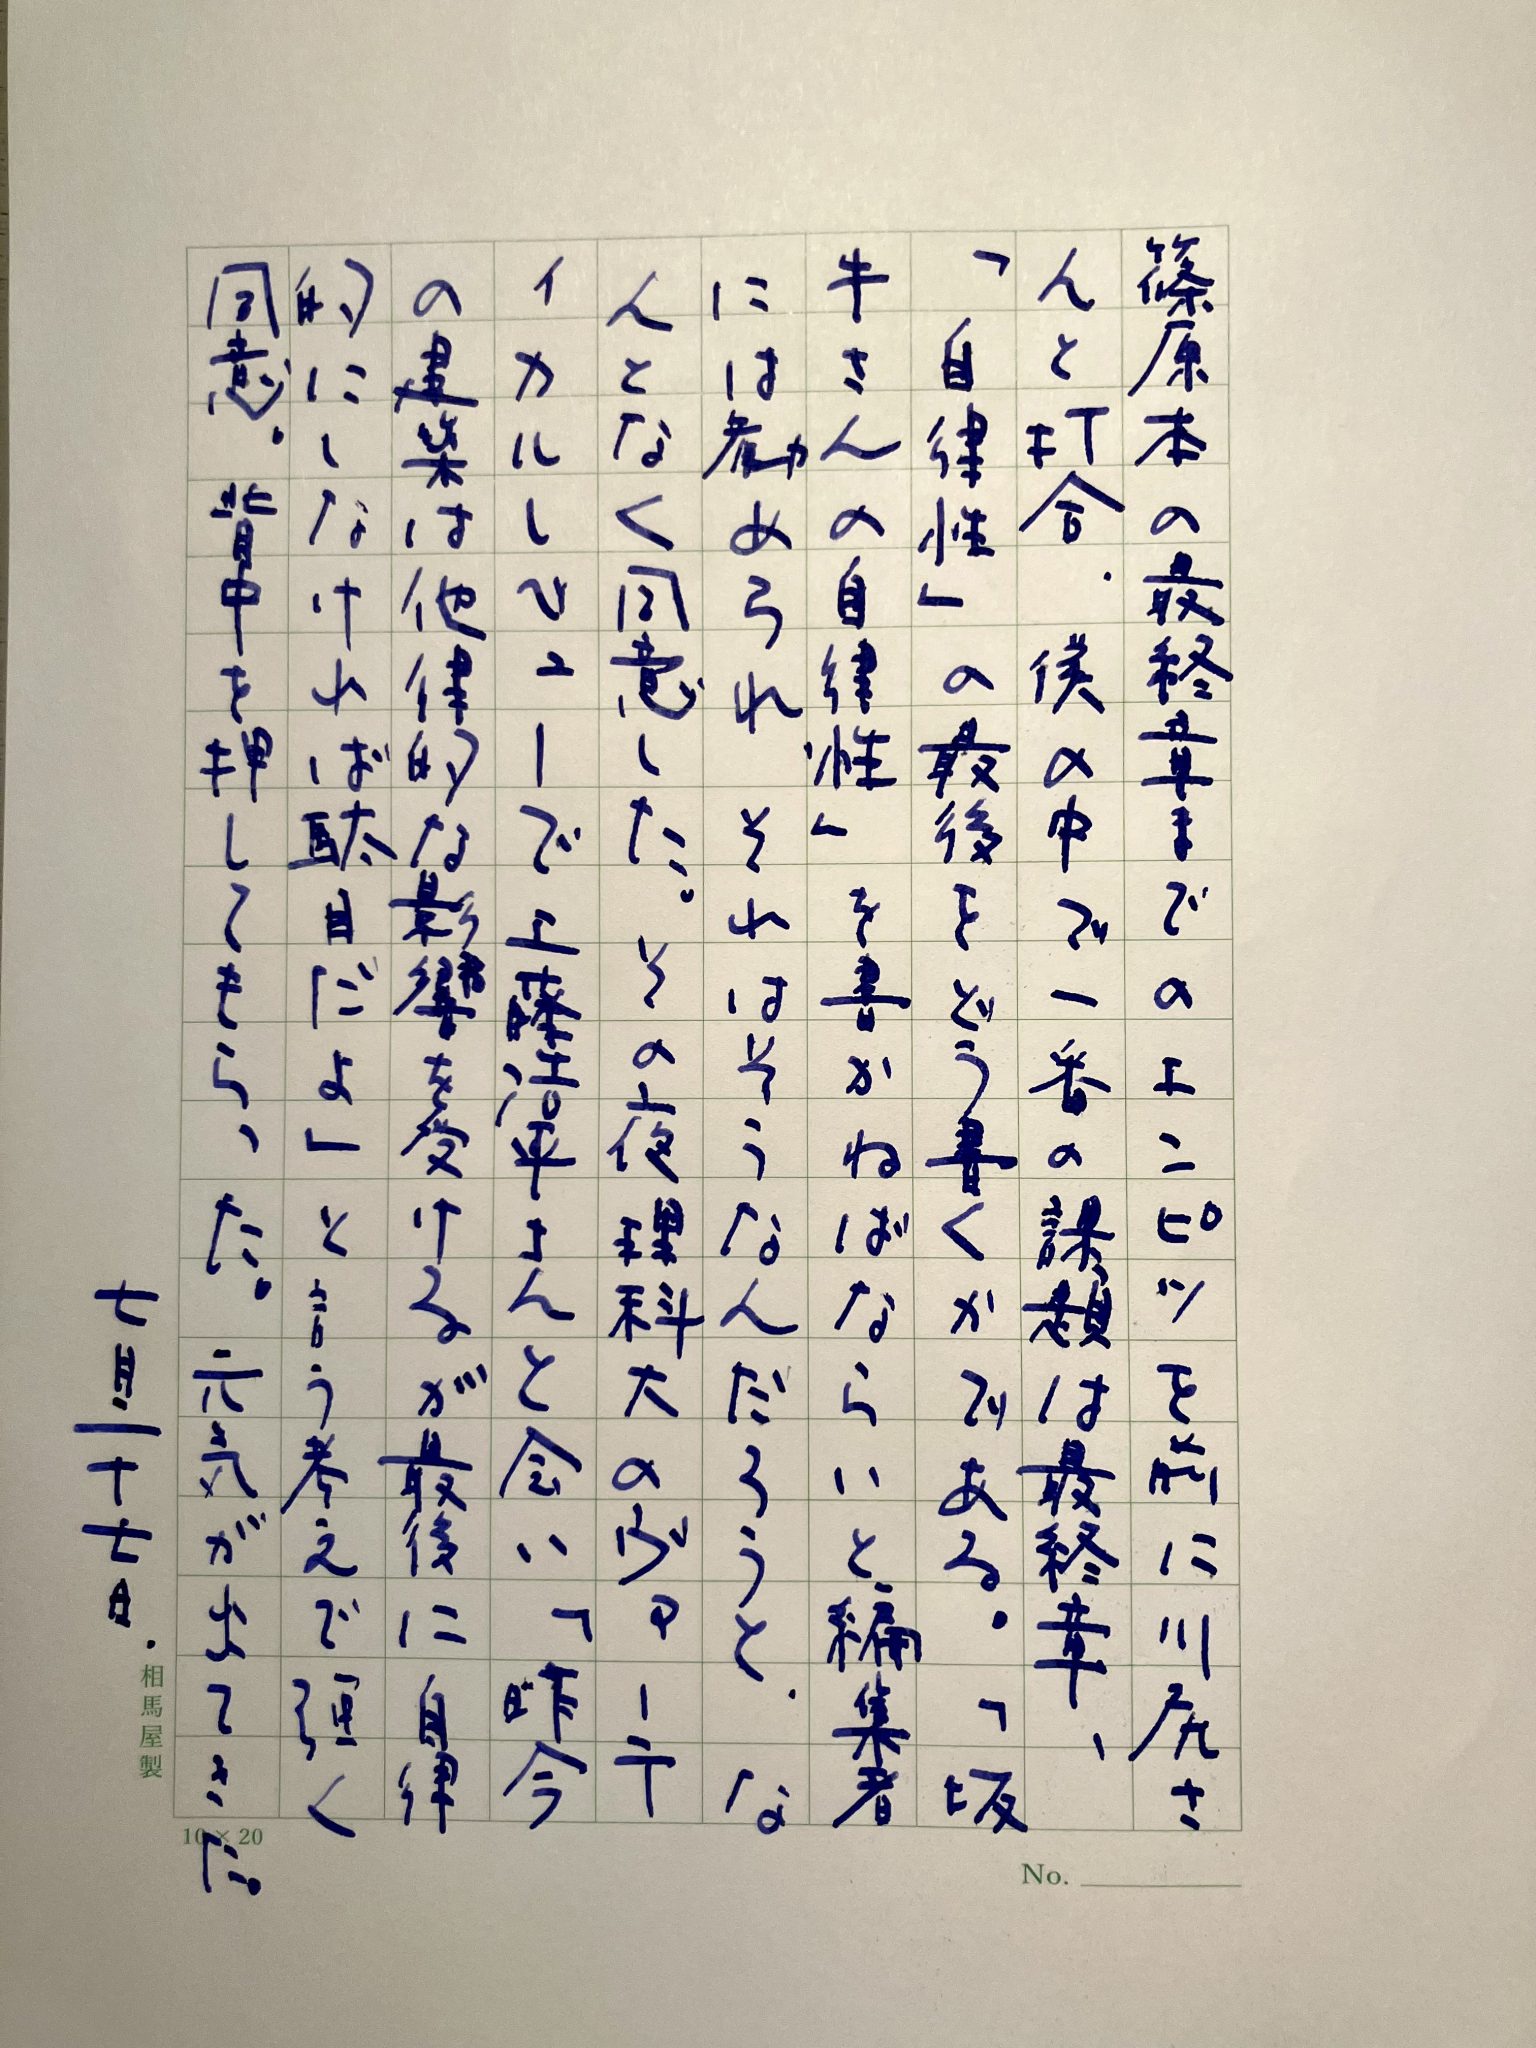 篠原本の最終章までのエンピツを前に川尻さ
んと打合、僕の中で一番の課題は最終章、
「自律性」の最後をどう書くかである。「坂
牛さんの自律性」を書かねばならいと編集者
には勧められ それはそうなんだろうと、な
んとなく同意した。その夜理科大のヴァーテ
ィカルレビューで工藤浩平さんと会い「昨今
の建築は他律的な影響を受けるが最後に自律
的にしなければ駄目だよ」と言う考えで強く
同意。背中を押してもらった。元気が出てきた。
七月二十七日.
相馬屋製
10×20
No.